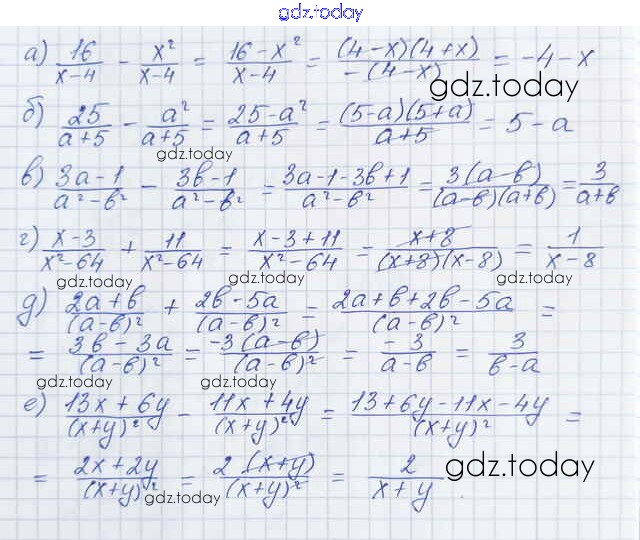 gdz.today
а) 16/(x-4) - x²/(x-4) = (16-x²)/(x-4) = (4-x)(4+x)/-(4-x) = -4-x
gdz.today
б) 25/(a+5) - a²/(a+5) = (25-a²)/(a+5) = (5-a)(5+a)/(a+5) = 5-a
gdz.today
в) (3a-1)/(a²-b²) - (3b-1)/(a²-b²) = (3a-1-3b+1)/(a²-b²) = 3(a-b)/(a-b)(a+b) = 3/(a+b)
г) (x-3)/(x²-64) + 11/(x²-64) = (x-3+11)/(x²-64) = (x+8)/(x+8)(x-8) = 1/(x-8)
gdz.today gdz.today gdz.today
д) (2a+b)/(a-b)² + (2b-5a)/(a-b)² = (2a+b+2b-5a)/(a-b)² =
= (3b-3a)/(a-b)² = -3(a-b)/(a-b)² = -3/(a-b) = 3/(b-a)
gdz.today gdz.today gdz.today
е) (13x+6y)/(x+y)² - (11x+4y)/(x+y)² = (13+6y-11x-4y)/(x+y)² =
= (2x+2y)/(x+y)² = 2(x+y)/(x+y)² = 2/(x+y)
gdz.today gdz.today